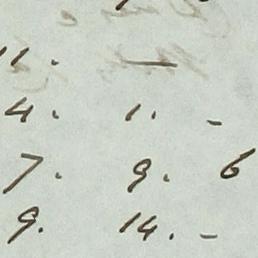 11. —
4. 1. -
7. 9. 6
9. 14. -